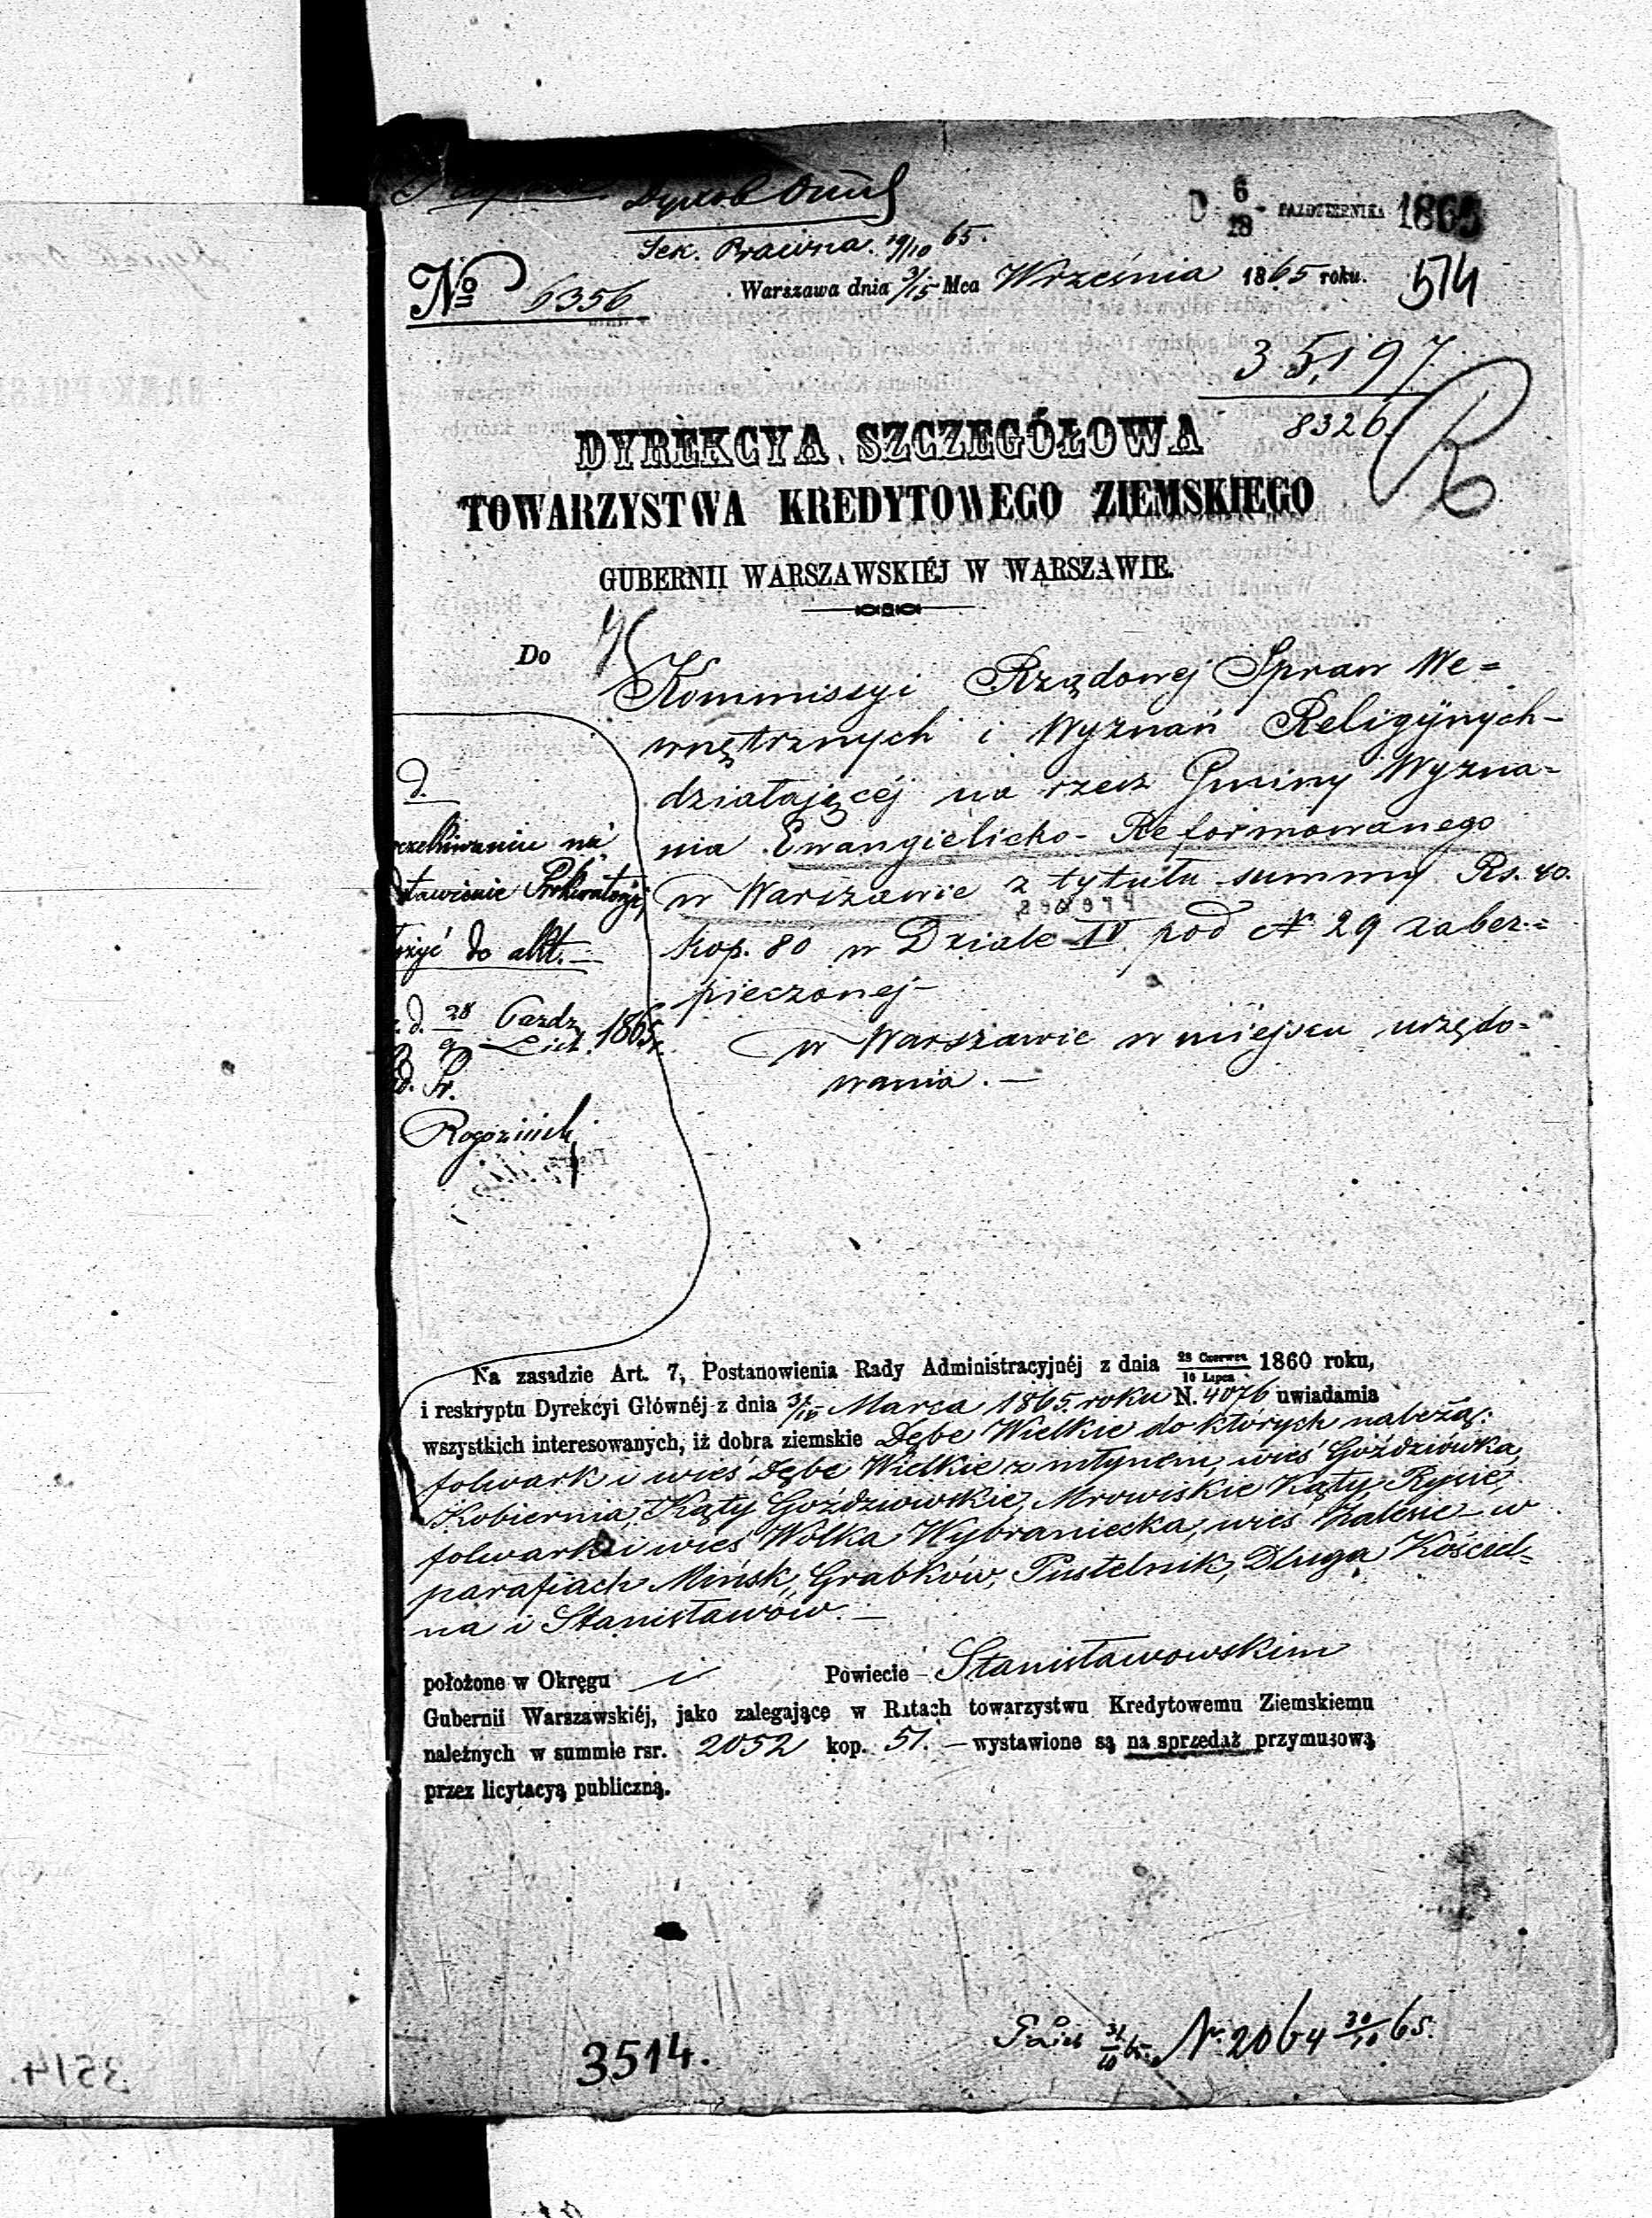 D 6/18 PAZDZIERNIKA 1865
Sek. Prawna. 19/10 65.
No 6356
Warszawa dnia 3/15 Mca Września 1865 roku.
514
35,197
8326
R
DYREKCYA SZCZEGÓŁOWA
TOWARZYSTWA KREDYTOWEGO ZIEMSKIEGO
GUBERNII WARSZAWSKIÉJ W WARSZAWIE.
Do
Kommissyi Rządowej Spraw We=
wnętrznych i Wyznań Religijnych-
działającéj na rzecz Gminy Wyzna=
nia Ewangielicko-Reformowanego
w Warszawie z tytułu summy Rs. 40.
kop. 80 w Dziale IV. pod N 29 zabez:=
pieczonej-
w Warszawie w miejscu urzędo=
wania.-
d.
oczekiwaniu na
stawienie Prokuratoryi
ożyć do akt.-
d. 28 Pazdz. / 9 List. 1865r.
Na zasadzie Art. 7, Postanowienia Rady Administracyjnéj z dnia 28 Czerwca / 10 Lipca 1860 roku,
i reskryptu Dyrekcyi Głównéj z dnia Marca 1865. roku N. 4076 uwiadamia
wszystkich interesowanych, iż dobra ziemskie Dębe Wielkie do których należą:
folwark i wieś Dębe Wielkie z młynem, wieś Goździówka,
Kobiernia, Kąty Goździowskie, Mrowiskie Kąty, Rysie,
folwark i wieś Wólka Wybraniecka, wieś Zalesie - w
parafiach Mińsk, Grabków, Pustelnik, Długa Kościel=
na i Stanisławów.-
położone w Okręgu i Powiecie Stanisławowskim
Gubernii Warszawskiéj, jako zalegające w Ratach towarzystwu Kredytowemu Ziemskiemu
należnych w summie rsr. 2052 kop. 51.- wystawione są na sprzedaż przymusową
przez licytacyą publiczną.
3514.
31/10 65. Nr. 2064 30/10 65.